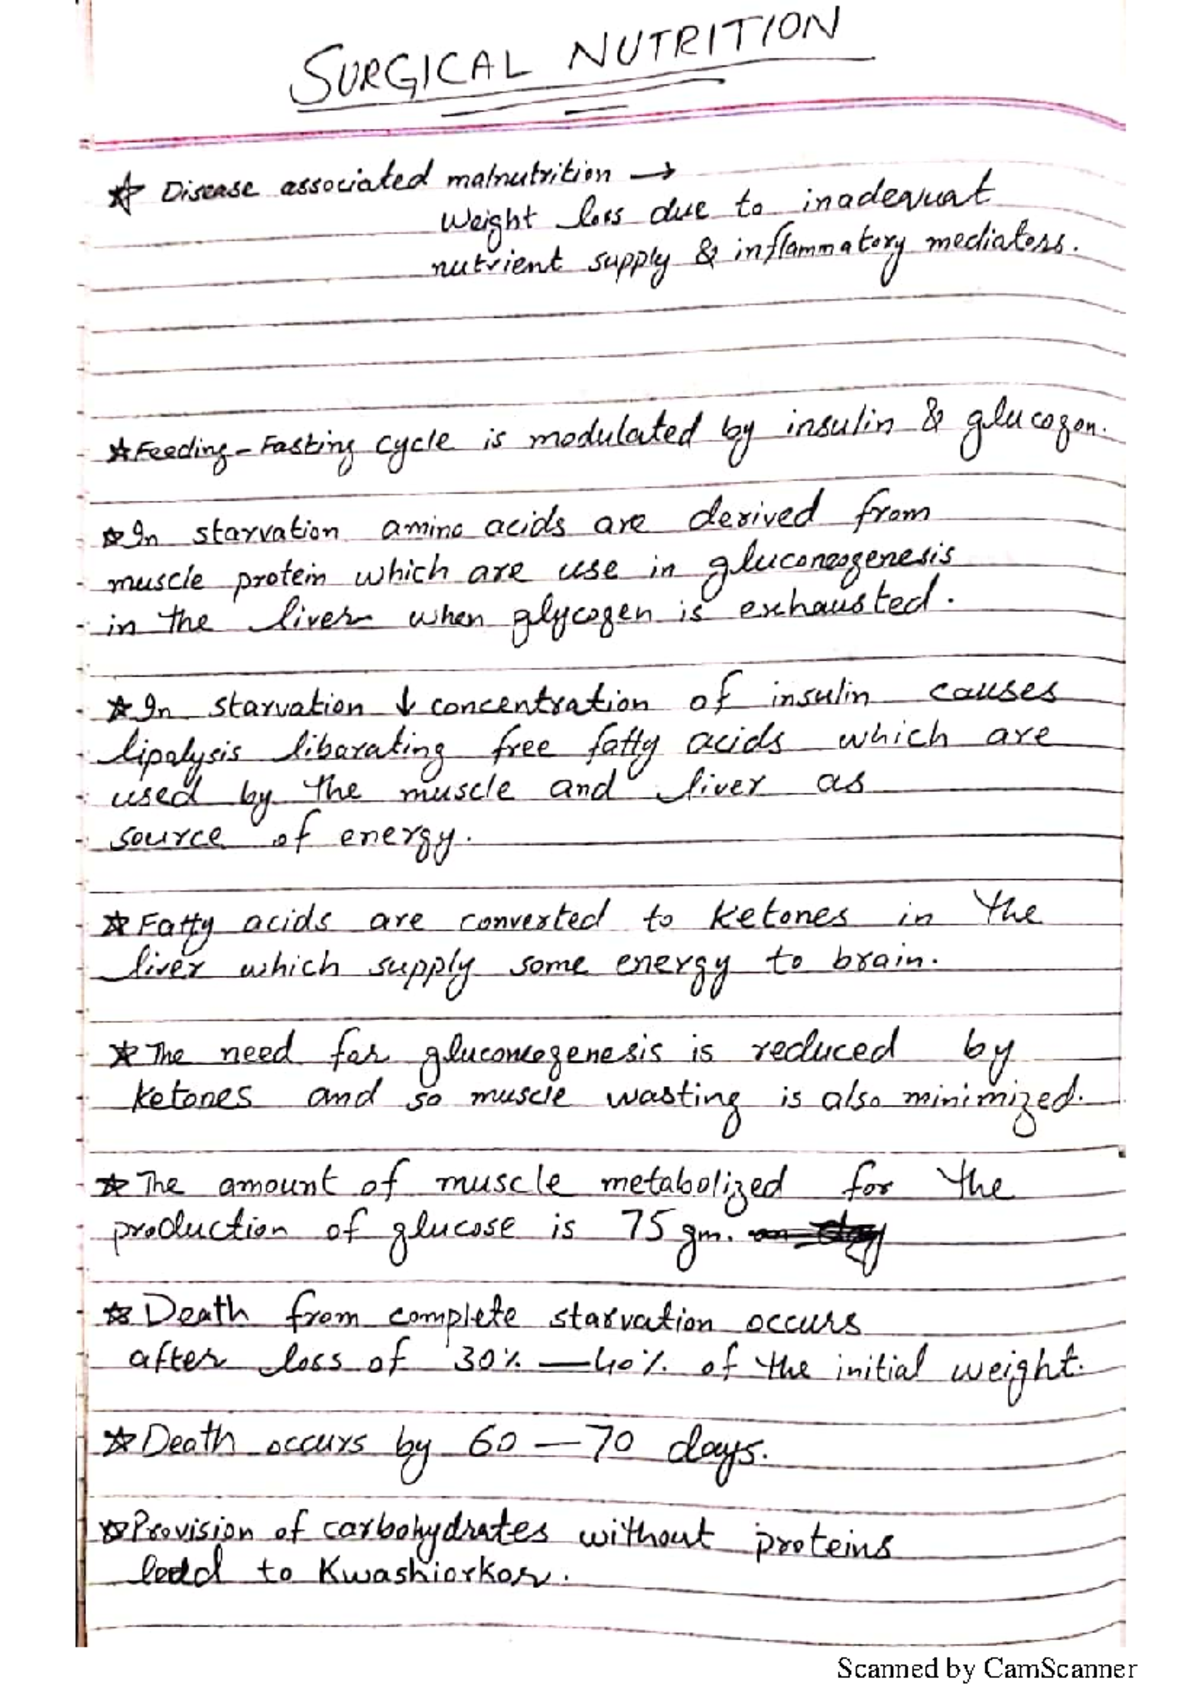 SURGICAL NUTRITION
☆ Disease associated malnutrition →
Weight loss due to inadequat
nutrient supply & inflammatory mediators.
☆ Feeding - Fasting cycle is modulated by insulin & glucogon.
☆ In starvation amino acids are derived from
muscle protein which are use in gluconeogenesis
in the liver when glycogen is exhausted.
☆ In starvation ↓ concentration of insulin causes
lipolysis libarating free fatty acids which are
used by the muscle and liver as
source of energy.
☆ Fatty acids are converted to ketones in the
liver which supply some energy to brain.
☆ The need for gluconeogenesis is reduced by
ketones and so muscle wasting is also minimized.
☆ The amount of muscle metabolized for the
production of glucose is 75 gm.
☆ Death from complete starvation occurs
after loss of 30% — 40% of the initial weight.
☆ Death occurs by 60 — 70 days.
☆ Provision of carbohydrates without proteins
lead to Kwashiorkor.
Scanned by CamScanner